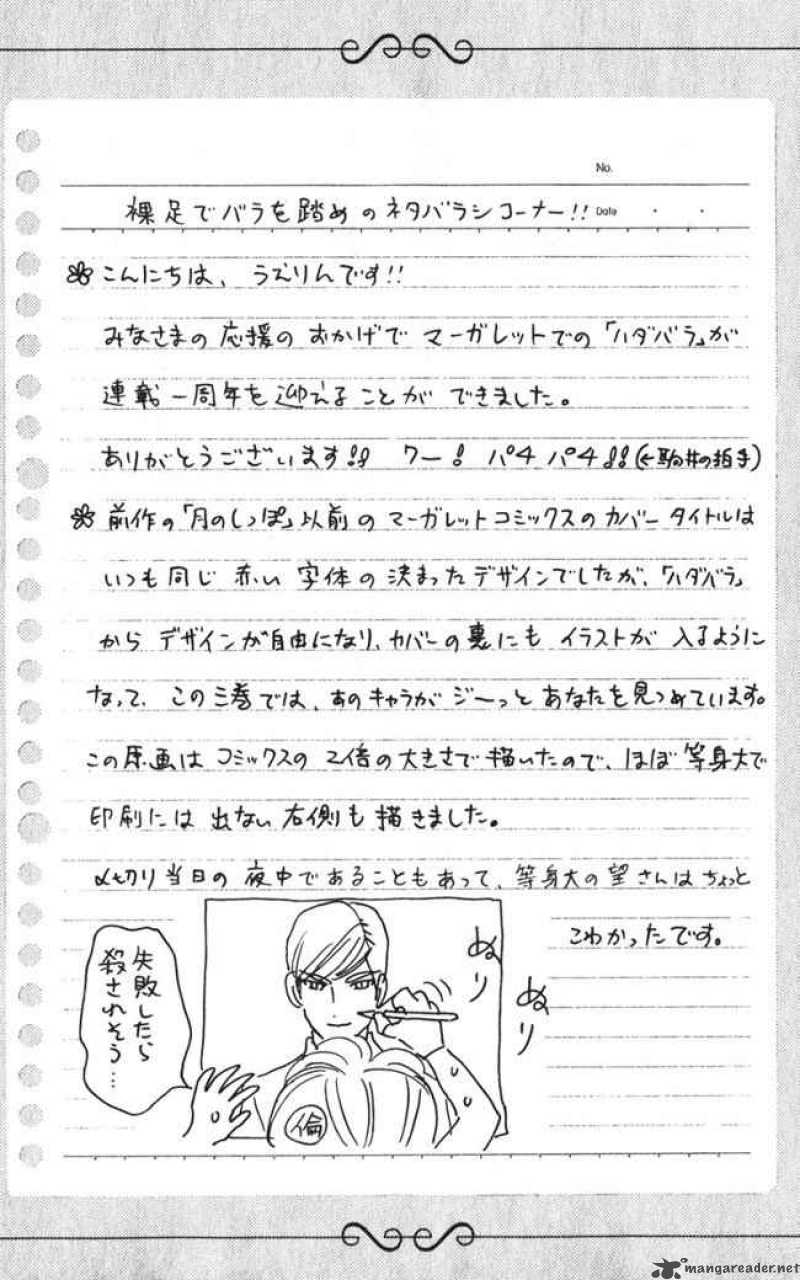 No.
裸足でバラを踏めのネタバラシコーナー!! Date ・ ・
こんにちは、うえりんです!!
みなさまの応援のおかげでマーガレットでの「ハダバラ」が
連載一周年を迎えることができました。
ありがとうございます!! ワー! パチパチ!!(←駒井の拍手)
前作の「月のしっぽ」以前のマーガレットコミックスのカバータイトルは
いつも同じ赤い字体の決まったデザインでしたが、「ハダバラ」
からデザインが自由になり、カバーの裏にもイラストが入るように
なって、この三巻では、あのキャラがジーっとあなたを見つめています。
この原画はコミックスの2倍の大きさで描いたので、ほぼ等身大で
印刷には出ない右側も描きました。
〆切り当日の夜中であることもあって、等身大の望さんはちょっと
こわかったです。
失敗したら
殺されそう…
ぬり
ぬり
倫
mangareader.net